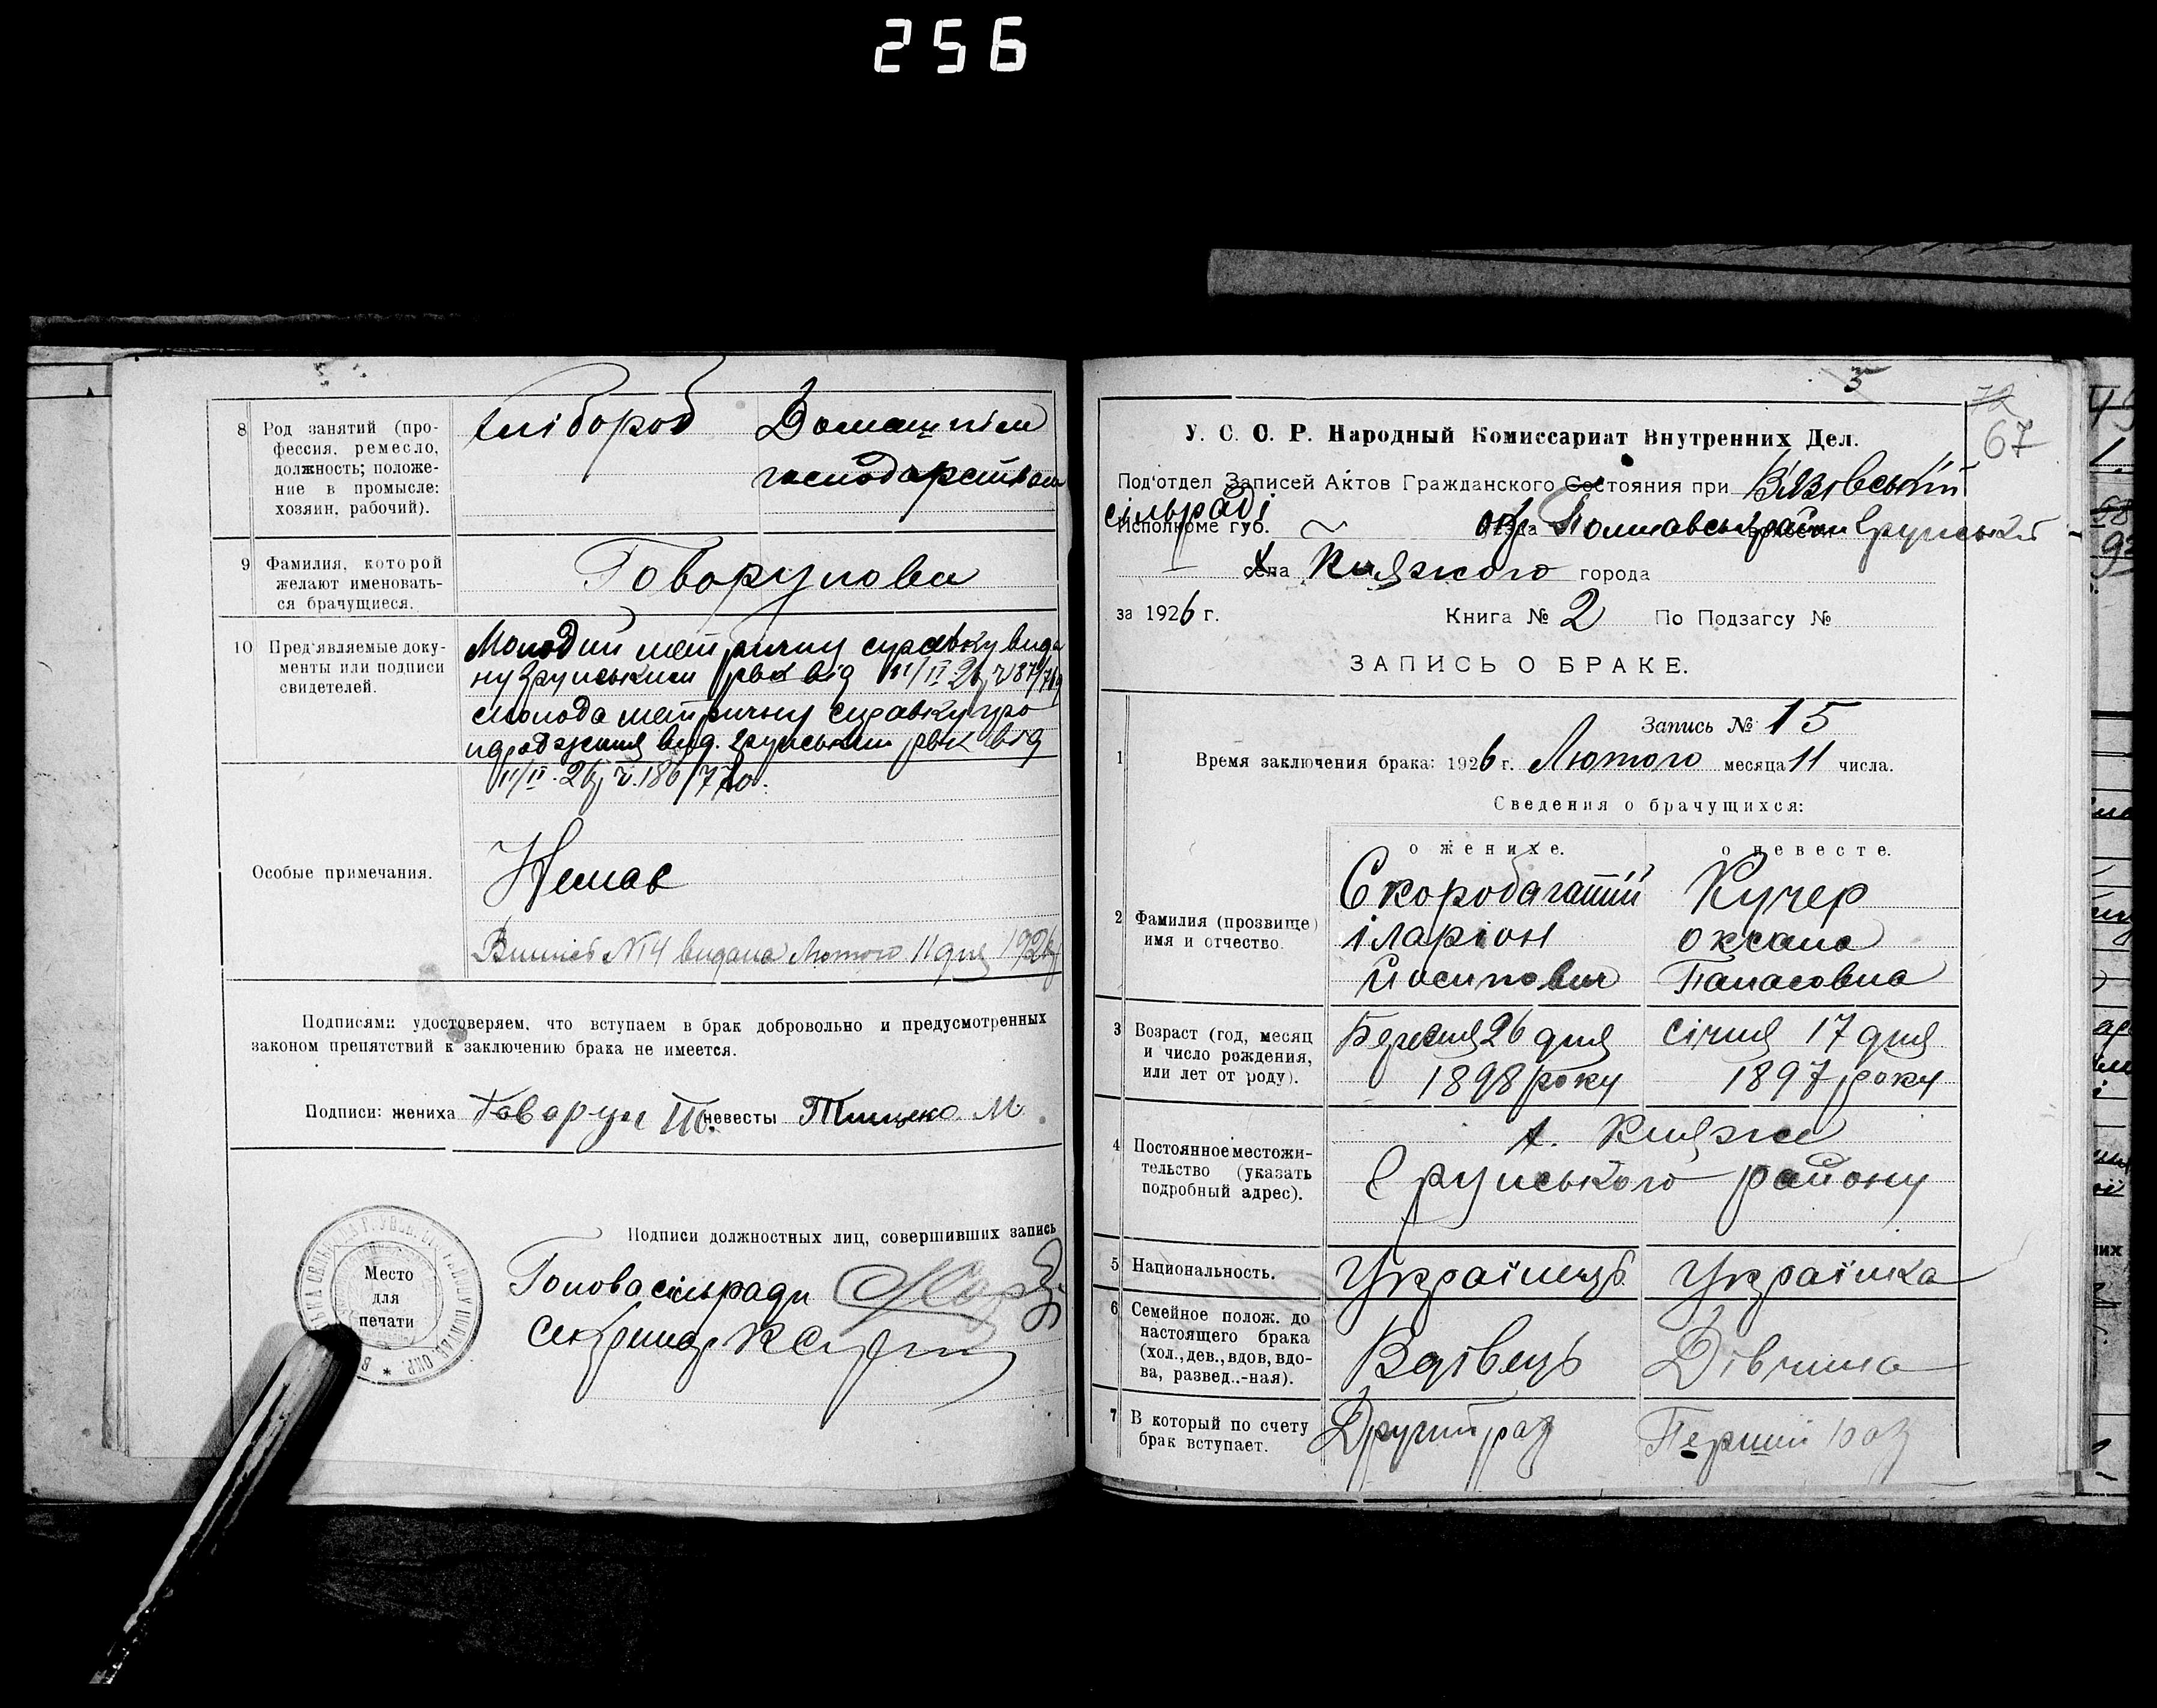 256
8 Род занятий (про-
фессия, ремесло,
должность; положе-
ние в промысле:
хозяин, рабочий).
Хлібороб
Домашнім
господарством
9 Фамилия, которой
желают именовать-
ся брачущиеся.
Говорунови
10 Пред'являемые доку-
менты или подписи
свидетелей.
Молодий метричну справку вида
ну рвк від 11/II 26
молода метричну справку про
народження вид. рвк від
11/II 26
Особые примечания.
Немає
Виписъ №14 видана Лютого 11 дня 1926
Подписями удостоверяем, что вступаем в брак добровольно и предусмотренных
законом препятствий к заключению брака не имеется.
Подписи: жениха Говорун невесты М
Подписи должностных лиц, совершивших запись
Место
для
печати
Голова сільради
Секретар
5
72
67
У. С. С. Р. Народный Комиссариат Внутренних Дел.
Под'отдел Записей Актов Гражданского Состояния при Вʼязовській
сільраді
Исполкоме губ. окр Полтавськ район
х села Княжого города
за 1926 г. Книга № 2 По Подзагсу №
ЗАПИСЬ О БРАКЕ.
Запись № 15
1 Время заключения брака: 1926 г. Лютого месяца 11 числа.
Сведения о брачущихся:
о женихе. о невесте.
2 Фамилия (прозвище)
имя и отчество.
Скоробагатий
іларіон
йосипович
Кучер
оксана
Панасовна
3 Возраст (год, месяц
и число рождения,
или лет от роду).
Березня 26 дня
1898 року
Січня 17 дня
1897 року
4 Постоянное местожи-
тельство (указать
подробный адрес).
х. Княже
району
5 Национальность.
Українець
Українка
6 Семейное полож. до
настоящего брака
(хол., дев., вдов, вдо-
ва, развед..-ная).
Вдівець
Дівчина
7 В который по счету
брак вступает.
Другий раз
Перший раз